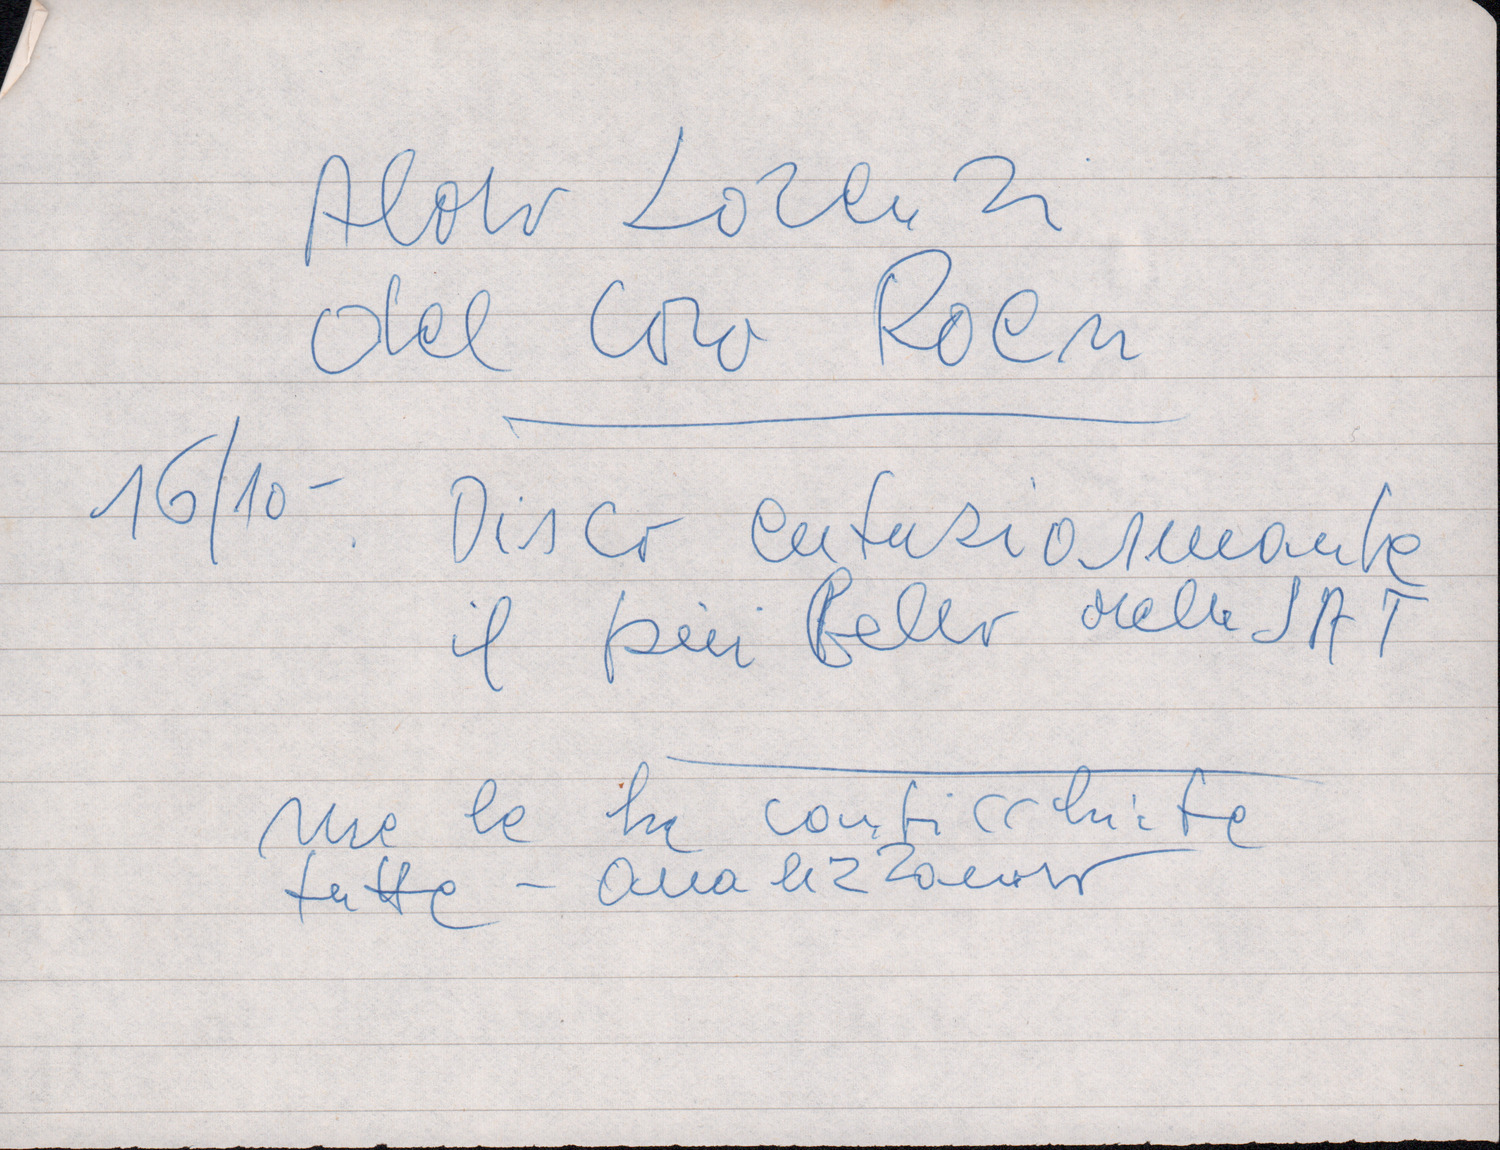 Aldo Lorenzi
del Coro Roen
16/10-. Disco entusiasmante
il più Bello della SAT
me le ha canticchiate
tutte - analizzando